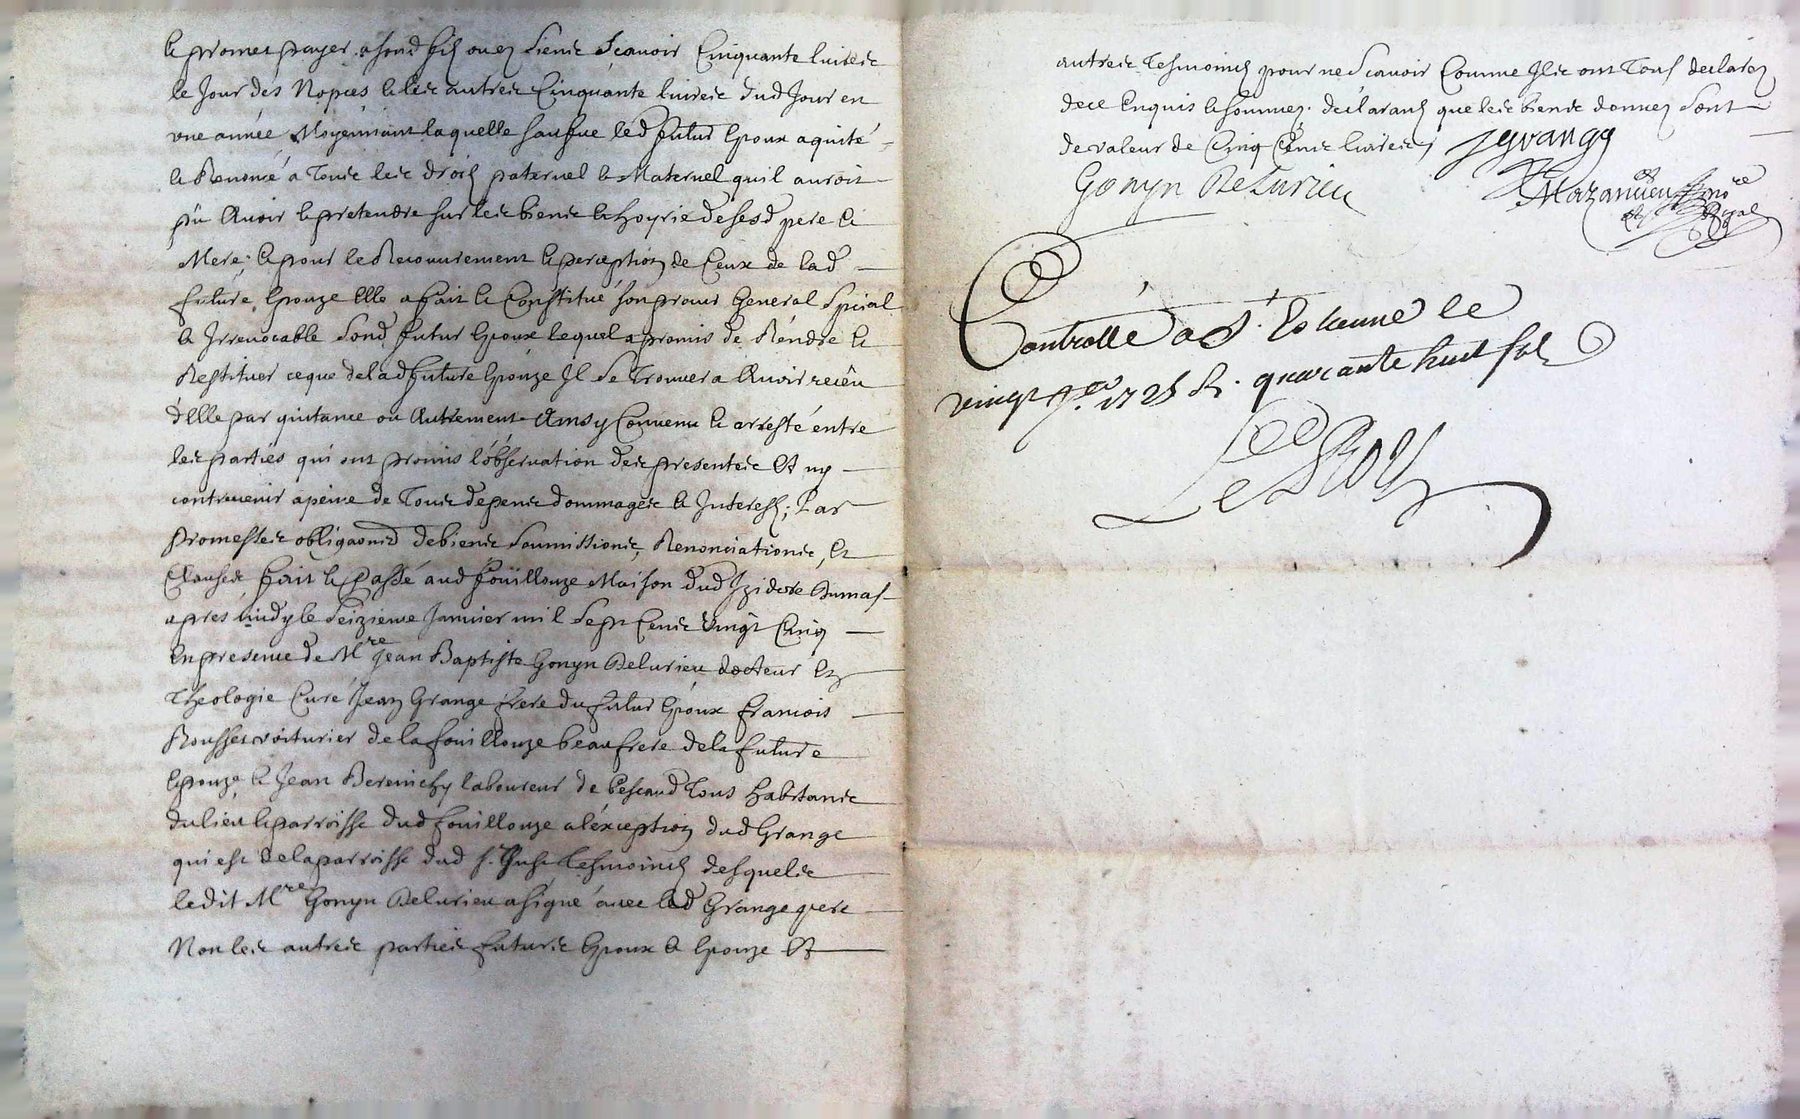 et promet payer a sond filz ou es siens Scavoir Cinquante livres
le Jour des Nopces et les autres Cinquante livres dud Jour en
une année Moyennant laquelle susd led futur Epoux a quité
et Renoncé a Tous les droits paternel et Maternel quil auroit
pû Avoir et pretendre sur les biens et hoyrie de sesd pere et
Mere, et pour le Recouvrement et perception de Ceux de lad
future Epouze Elle a fait et Constitué son procur General Spécial
et Irrevocable Sond futur Epoux lequel a promis de Réndre et
Restituer ce que de lad future Epouze Il Se Trouvera Avoir recëu
d'Elle par quitance ou Autrement Ainsy Convenu et arresté éntre
les partiés qui ont promis l'observation des presentes Et ny
contrevenir a peine de Tous depens dommages et Interests; Par
Promesses obligaons de biens Soumissions, Renonciations, Et
Clauses fait et Passé aud foüillouze Maison dud Izidore Dumas
apres midy le Seizieme Janvier mil Sept Cens Vingt Cinq
En presence de Mre Jean Baptiste Gonyn Delurieu docteur En
Theologie Curé Jean Grange frere du futur Epoux francois
Rousset voiturier de la fouillouze beaufrere de la future
Epouze et Jean laboureur de Tous habitans
du lieu et parroisse dud fouillouze a léxception dud Grange
qui est de la parroisse dud St. Just Tesmoins desquels
ledit Mre Gonyn Delurieu a signé avec led Grange pere
Non les autres parties futurs Epoux et Epouze Et
autres Tesmoins pour ne Scavoir Comme Ils ont Tous declarez
de ce Enquis et Sommez. declarans que les biens donnez Sont
de valeur de Cinq Cens livres;
jgrange
Gonyn Delurieu
Mazenieu nore
Royal
Controllé a St. Estienne le
vingt Jer 1725 R. quarante huit sols
Le Roy